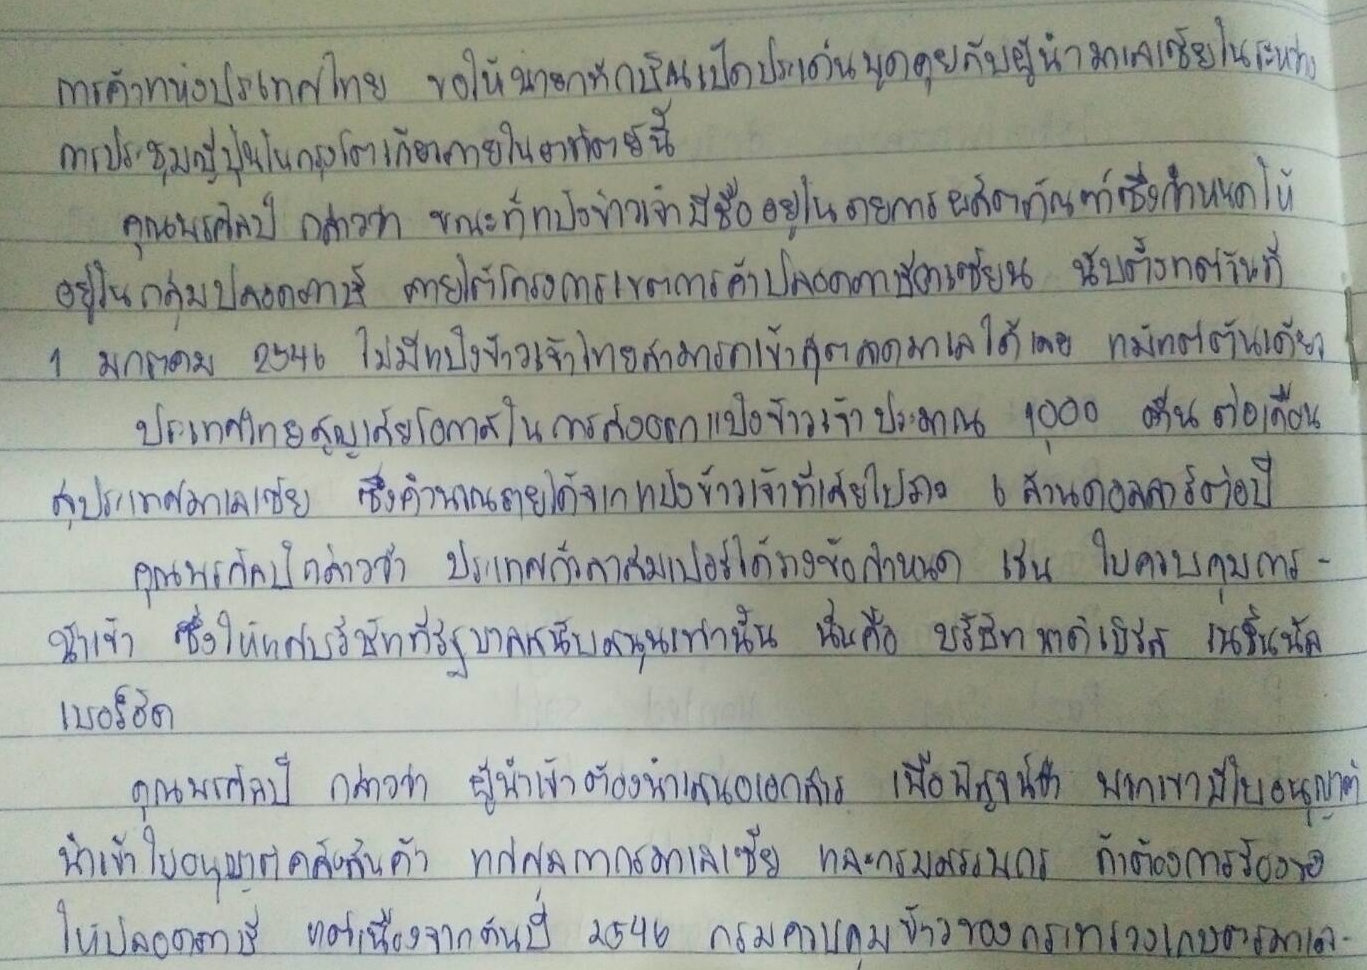 การค้าแห่งประเทศไทย ขอให้นายกทักษิณเปิดประเด่นพูดคุยกับผู้นำมาเลเซียในระหว่าง
การประชุมญี่ปุ่นในกรุงโตเกียวภายในอาทิตย์นี้
คุณพรศิลป์ กล่าวว่า ขณะที่แป้งข้าวเจ้ามีชื่ออยู่ในรายการผลิตภัณฑ์ซึ่งกำหนดให้
อยู่ในกลุ่มปลอดภาษี ภายใต้โครงการเขตการค้าปลอดภาษีอาเซียน นับตั้งแต่วันที่
1 มกราคม 2546 ไม่มีแป้งข้าวเจ้าไทยสามารถเข้าสู่ตลาดมาเลได้เลย แม้แต่ตันเดียว
ประเทศไทยสูญเสียโอกาสในการส่งออกแป้งข้าวเจ้าประมาณ 1,000 ตันต่อเดือน
สู่ประเทศมาเลเซีย ซึ่งคำนวณรายได้จากแป้งข้าวเจ้าที่เสียไปราว 6 ล้านดอลลาร์ต่อปี
คุณพรศิลป์กล่าวว่า ประเทศกัวลาลัมเปอร์ได้วางข้อกำหนด เช่น ใบควบคุมการ-
นำเข้า ซึ่งให้แต่บริษัทที่รัฐบาลสนับสนุนเท่านั้น นั่นคือ บริษัท พาดิเบิร์ส เนชั่นนัล
เบอร์ฮัด
คุณพรศิลป์ กล่าวว่า ผู้นำเข้าต้องนำเสนอเอกสาร เพื่อพิสูจน์ว่า พวกเขามีใบอนุญาต
นำเข้า ใบอนุญาตคลังสินค้า แก่ศุลกากรมาเลเซีย และกรมสรรพกร ถ้าต้องการร้องขอ
ให้ปลอดภาษี แต่เนื่องจากต้นปี 2546 กรมควบคุมข้าวของกระทรวงเกษตรมาเล-